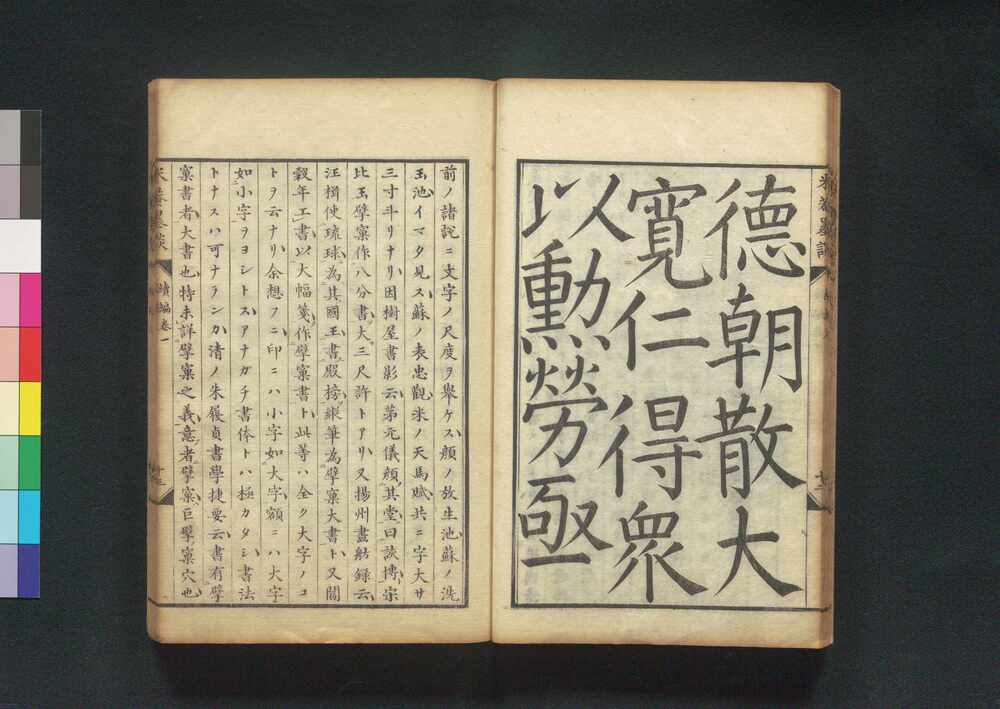 德朝散大
寛仁得衆
以勳勞亟
前ノ諸説ニ文字ノ尺度ヲ舉ケス顔ノ放生池蘇ノ洗
玉池イマタ見ス蘇ノ表忠觀米ノ天馬賦共ニ字大サ
三寸斗リナリ因樹屋書影云茅元儀顔其堂曰該博宗
比玉擘窠作八分書大三尺許トアリ又揚州畫舫録云
汪楫使琉球為其國王書殿榜縱筆為擘窠大書ト又關
穀年工書以大幅箋作擘窠書ト此等ハ全ク大字ノコ
トヲ云ナリ余想フニ印ニハ小字如大字額ニハ大字
如小字ヲヨシトスアナガチ書体トハ極カタシ書法
トナスハ可ナランカ清ノ朱履貞書學捷要云書有擘
窠書者大書也特未詳擘窠之義意者擘窠巨擘窠穴也
米菴墨談
續編卷一